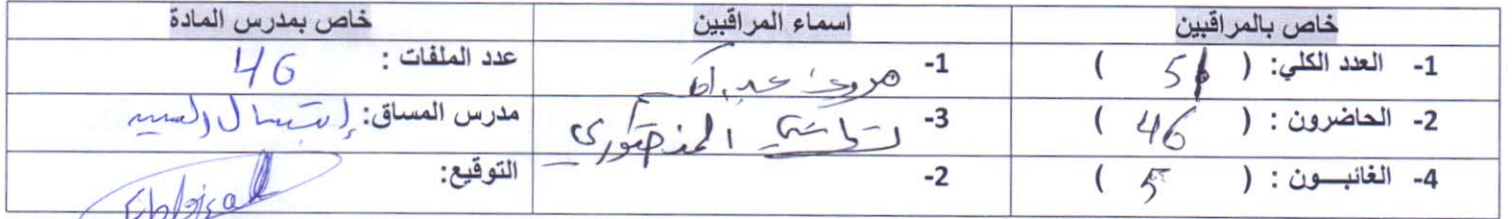 خاص بالمراقبين اسماء المراقبين خاص بمدرس المادة
1- العدد الكلي: ( 51 ) 1- عدد الملفات : 46
2- الحاضرون : ( 46 ) 3- مدرس المساق: إبتسال السيد
4- الغائبـــون : ( 5 ) 2- التوقيع: